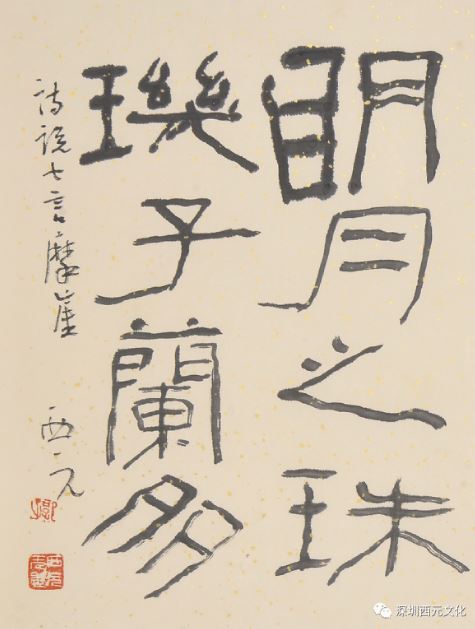 明月之珠
璣子蘭多
诗说七言摩崖
西元
深圳西元文化